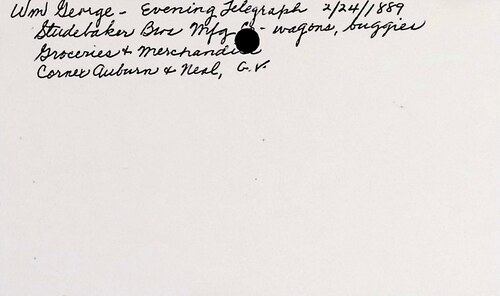 Wm George - Evening Telegraph 2/24/1889
Studebaker Bros Mfg Co - wagons, buggies
Groceries & Merchandise
Corner Auburn & Neal, G.V.